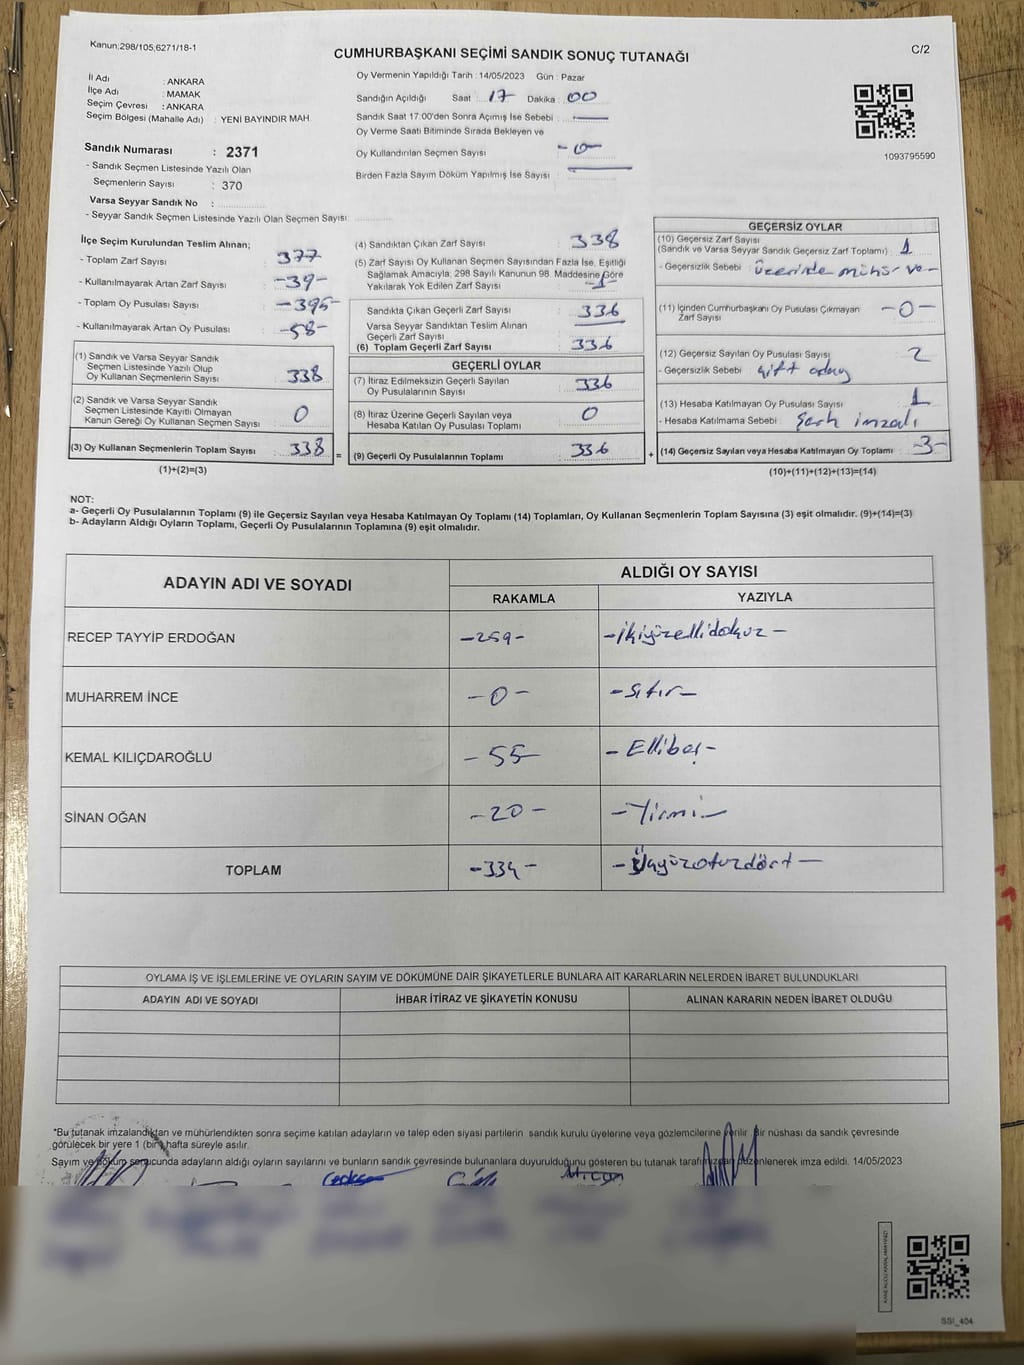 Kanun:298/105;6271/18-1
CUMHURBAŞKANI SEÇİMİ SANDIK SONUÇ TUTANAĞI
C/2
İl Adı : ANKARA
İlçe Adı : MAMAK
Seçim Çevresi : ANKARA
Seçim Bölgesi (Mahalle Adı) : YENİ BAYINDIR MAH.
Sandık Numarası : 2371
- Sandık Seçmen Listesinde Yazılı Olan
Seçmenlerin Sayısı : 370
Varsa Seyyar Sandık No :
- Seyyar Sandık Seçmen Listesinde Yazılı Olan Seçmen Sayısı:
Oy Vermenin Yapıldığı Tarih : 14/05/2023 Gün : Pazar
Sandığın Açıldığı Saat : 17 Dakika : 00
Sandık Saat 17:00'den Sonra Açımış İse Sebebi :
Oy Verme Saati Bitiminde Sırada Bekleyen ve
Oy Kullandırılan Seçmen Sayısı -0-
Birden Fazla Sayım Döküm Yapılmış İse Sayısı :
1093795590
İlçe Seçim Kurulundan Teslim Alınan;
- Toplam Zarf Sayısı : 377
- Kullanılmayarak Artan Zarf Sayısı : -39-
- Toplam Oy Pusulası Sayısı : -395-
- Kullanılmayarak Artan Oy Pusulası : -58-
(1) Sandık ve Varsa Seyyar Sandık
Seçmen Listesinde Yazılı Olup
Oy Kullanan Seçmenlerin Sayısı : 338
(2) Sandık ve Varsa Seyyar Sandık
Seçmen Listesinde Kayıtlı Olmayan
Kanun Gereği Oy Kullanan Seçmen Sayısı : 0
(3) Oy Kullanan Seçmenlerin Toplam Sayısı : 338 =
(1)+(2)=(3)
(4) Sandıktan Çıkan Zarf Sayısı : 338
(5) Zarf Sayısı Oy Kullanan Seçmen Sayısından Fazla İse, Eşitliği
Sağlamak Amacıyla, 298 Sayılı Kanunun 98. Maddesine Göre
Yakılarak Yok Edilen Zarf Sayısı :
Sandıkta Çıkan Geçerli Zarf Sayısı : 336
Varsa Seyyar Sandıktan Teslim Alınan
Geçerli Zarf Sayısı :
(6) Toplam Geçerli Zarf Sayısı : 336
GEÇERLİ OYLAR
(7) İtiraz Edilmeksizin Geçerli Sayılan
Oy Pusulalarının Sayısı : 336
(8) İtiraz Üzerine Geçerli Sayılan veya
Hesaba Katılan Oy Pusulası Toplamı : 0
(9) Geçerli Oy Pusulalarının Toplamı : 336 +
GEÇERSİZ OYLAR
(10) Geçersiz Zarf Sayısı
(Sandık ve Varsa Seyyar Sandık Geçersiz Zarf Toplamı) : 1
- Geçersizlik Sebebi : üzerinde mühür var
(11) İçinden Cumhurbaşkanı Oy Pusulası Çıkmayan
Zarf Sayısı : -0-
(12) Geçersiz Sayılan Oy Pusulası Sayısı : 2
- Geçersizlik Sebebi : çift oday
(13) Hesaba Katılmayan Oy Pusulası Sayısı : 1
- Hesaba Katılmama Sebebi : imzalı
(14) Geçersiz Sayılan veya Hesaba Katılmayan Oy Toplamı : -3-
(10)+(11)+(12)+(13)=(14)
NOT:
a- Geçerli Oy Pusulalarının Toplamı (9) ile Geçersiz Sayılan veya Hesaba Katılmayan Oy Toplamı (14) Toplamları, Oy Kullanan Seçmenlerin Toplam Sayısına (3) eşit olmalıdır. (9)+(14)=(3)
b- Adayların Aldığı Oyların Toplamı, Geçerli Oy Pusulalarının Toplamına (9) eşit olmalıdır.
ADAYIN ADI VE SOYADI
ALDIĞI OY SAYISI
RAKAMLA YAZIYLA
RECEP TAYYİP ERDOĞAN -259- -İkiyüzellidokuz-
MUHARREM İNCE -0- -Sıfır-
KEMAL KILIÇDAROĞLU -55- -Ellibeş-
SİNAN OĞAN -20- -Yirmi-
TOPLAM -334- -Üçyüzotuzdört-
OYLAMA İŞ VE İŞLEMLERİNE VE OYLARIN SAYIM VE DÖKÜMÜNE DAİR ŞİKAYETLERLE BUNLARA AİT KARARLARIN NELERDEN İBARET BULUNDUKLARI
ADAYIN ADI VE SOYADI İHBAR İTİRAZ VE ŞİKAYETİN KONUSU ALINAN KARARIN NEDEN İBARET OLDUĞU
*Bu tutanak imzalandıktan ve mühürlendikten sonra seçime katılan adayların ve talep eden siyasi partilerin sandık kurulu üyelerine veya gözlemcilerine verilir. Bir nüshası da sandık çevresinde
görülecek bir yere 1 (bir) hafta süreyle asılır.
Sayım ve döküm sonucunda adayların aldığı oyların sayılarını ve bunların sandık çevresinde bulunanlara duyurulduğunu gösteren bu tutanak tarafımızdan düzenlenerek imza edildi. 14/05/2023
SSI_404